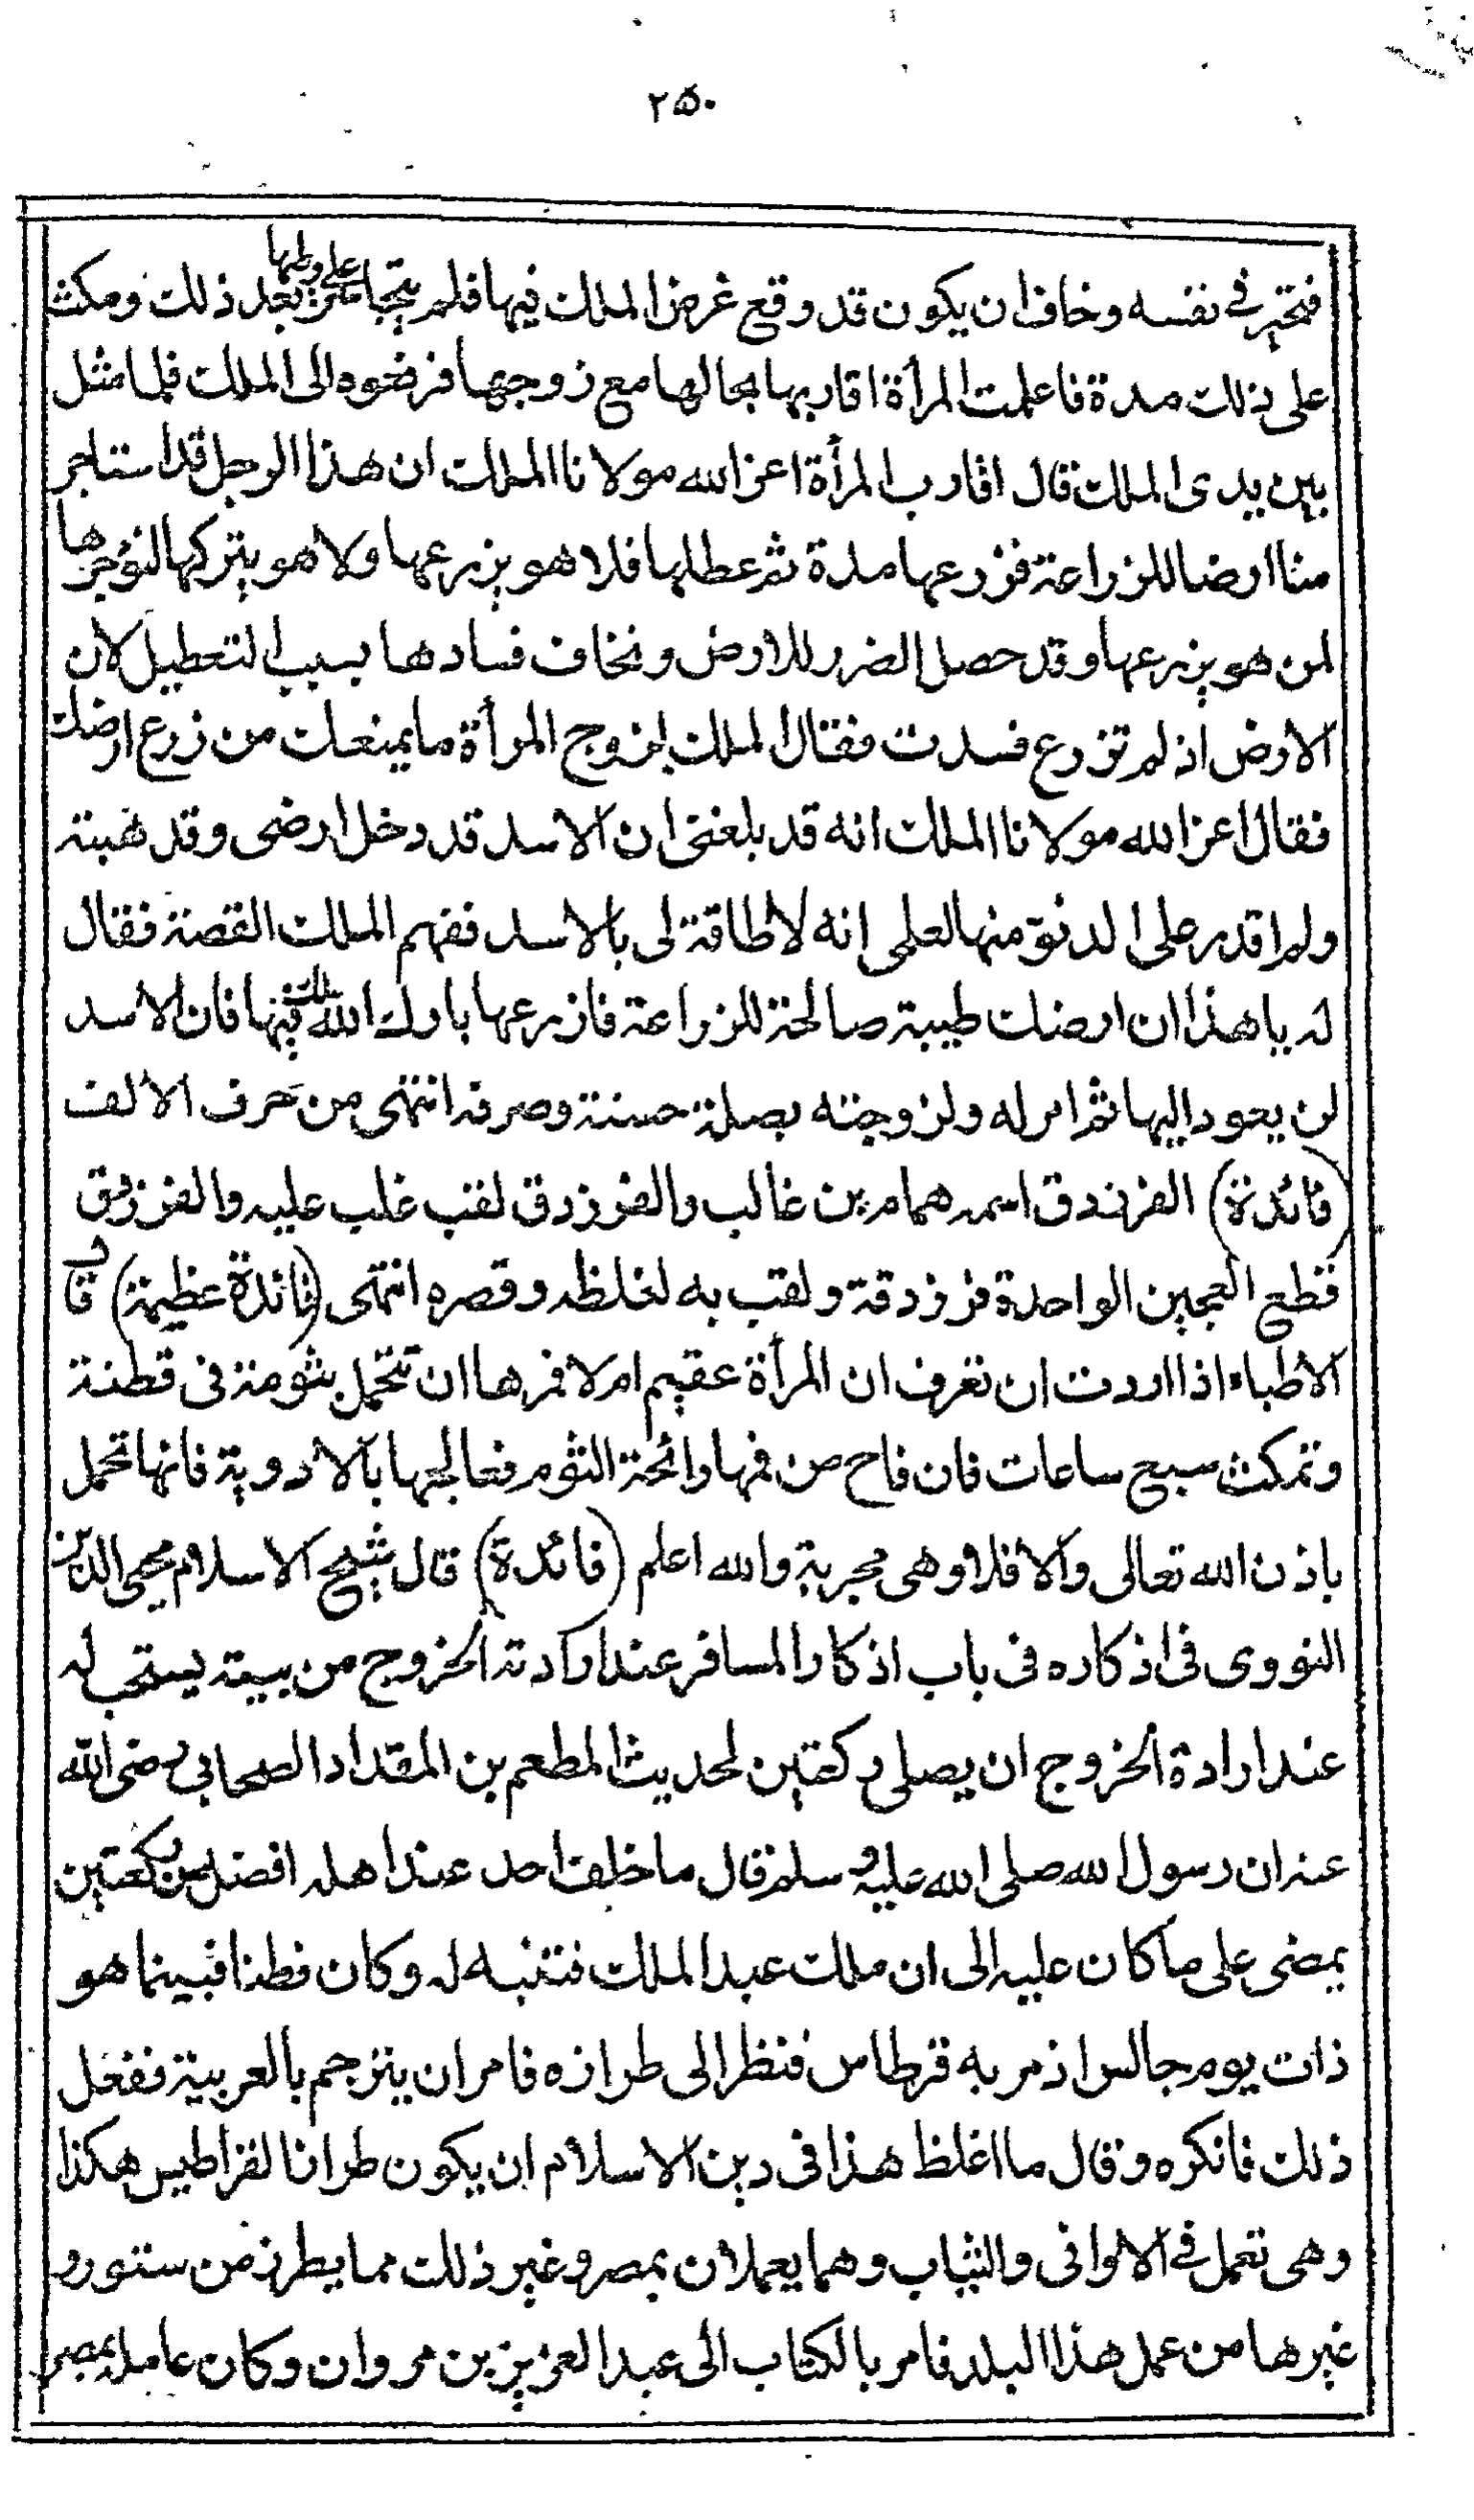 ٢٥٠
فتحير في نفسه وخاف ان يكون قد وقع غرض الملك فيها فلم يتجا على وطئها بعد ذلك ومكث
على ذلك مدة فاعلمت المرأة اقاربها بحالها مع زوجها فرفعوه الى الملك فلما مثل
بين يدى الملك قال اقارب المرأة اعز الله مولانا الملك ان هذا الرجل قد استاجر
منا ارضا للزراعة فزرعها مدة ثم عطلها فلا هو يزرعها ولا هو يتركها لنؤجرها
لمن هو يزرعها وقد حصل الضرر للارض ونخاف فسادها بسبب التعطيل لان
الارض اذ لم تزرع فسدت فقال الملك لزوج المرأة ما يمنعك من زرع ارضك
فقال اعز الله مولانا الملك انه قد بلغنى ان الاسد قد دخل ارضى وقد هبته
ولم اقدر على الدنو منها لعلمى انه لا طاقة لى بالاسد ففهم الملك القصة فقال
له يا هذا ان ارضك طيبة صالحة للزراعة فازرعها بارك الله لك فيها فان الاسد
لن يعود اليها ثم امر له ولزوجته بصلة حسنة وصرفه انتهى من حرف الالف
(فائدة) الفرزدق اسمه همام بن غالب والفرزدق لقب غلب عليه والفرزدق
قطع العجين الواحدة فرزدقة ولقب به لغلظه وقصره انتهى (فائدة عظيمة) قال
الاطباء اذا اردت ان تعرف ان المرأة عقيم ام لا فمرها ان تتحمل بثومة فى قطنة
وتمكث سبع ساعات فان فاح من فمها رائحة الثوم فعالجها بالادوية فانها تحمل
باذن الله تعالى والا فلا وهى مجربة والله اعلم (فائدة) قال شيخ الاسلام محيى الدين
النووى فى اذكاره فى باب اذكار المسافر عند ارادته الخروج من بيته يستحب له
عند ارادة الخروج ان يصلى ركعتين لحديث المطعم بن المقداد الصحابى رضى الله
عنه ان رسول الله صلى الله عليه وسلم قال ما خلف احد عند اهله افضل من ركعتين
بمضى على ما كان عليه الى ان ملك عبد الملك فتنبه له وكان فطنا فبينما هو
ذات يوم جالس اذ مر به قرطاس فنظر الى طرازه فامر ان يترجم بالعربية ففعل
ذلك فانكره وقال ما اغلظ هذا فى دين الاسلام ان يكون طراز القراطيس هكذا
وهى تعمل في الاوانى والثياب وهما يعملان بمصر وغير ذلك مما يطرز من ستور و
غيرها من عمل هذا البلد فامر بالكتاب الى عبد العزيز بن مروان وكان عامله بمصر